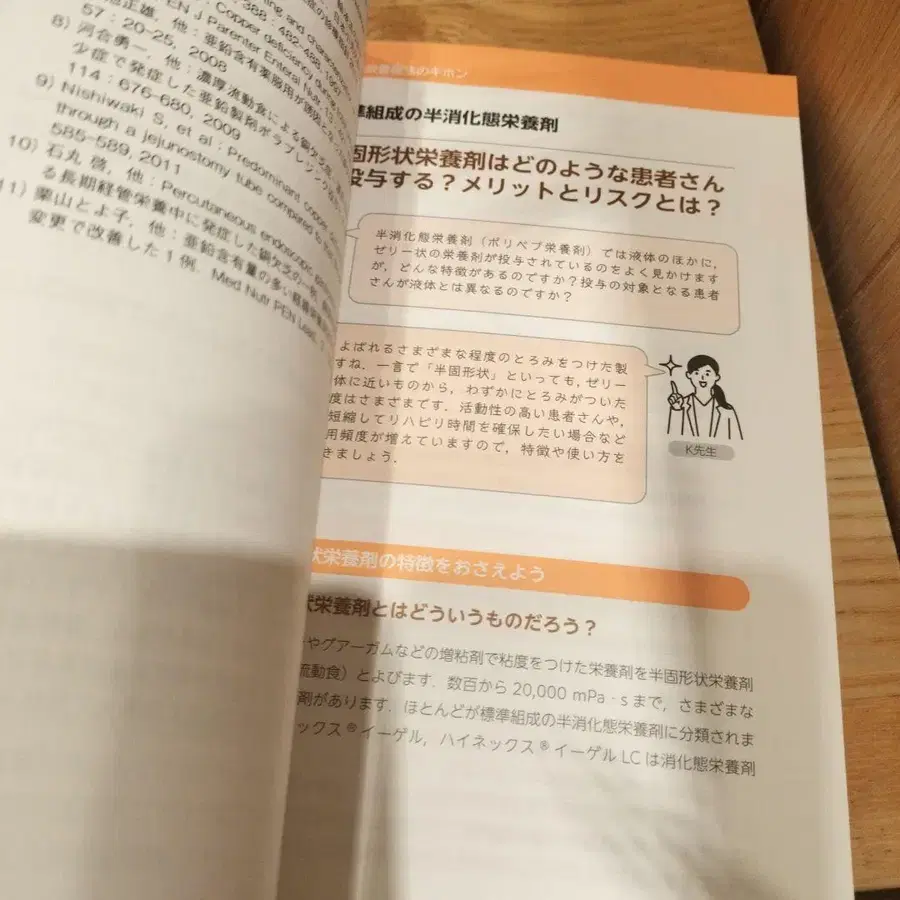 388 : 482-488, 1997
57 : 20-25, 2008
8) 河合勇一, 他 : 濃厚流動食による
少症で発症した亜鉛製剤ポラプレジンク
114 : 676-680, 2009
9) Nishiwaki S, et al : Predominant copper
through a jejunostomy tube compared to
585-589, 2011
10) 石丸 啓, 他 : Percutaneous endoscopic
る長期経管栄養中に発症した銅欠乏の一例
11) 栗山とよ子, 他 : 亜鉛含有量の多い
変更で改善した1例. Med Nutr PEN Leaders
のキホン
準組成の半消化態栄養剤
固形状栄養剤はどのような患者さん
投与する？メリットとリスクとは？
半消化態栄養剤（ポリペプ栄養剤）では液体のほかに，
ゼリー状の栄養剤が投与されているのをよく見かけます
が，どんな特徴があるのですか？投与の対象となる患者
さんが液体とは異なるのですか？
よばれるさまざまな程度のとろみをつけた製
すね．一言で「半固形状」といっても，ゼリー
体に近いものから，わずかにとろみがついた
度はさまざまです．活動性の高い患者さんや，
短縮してリハビリ時間を確保したい場合など
用頻度が増えていますので，特徴や使い方を
きましょう．
K先生
状栄養剤の特徴をおさえよう
状栄養剤とはどういうものだろう？
やグアーガムなどの増粘剤で粘度をつけた栄養剤を半固形状栄養剤
流動食）とよびます．数百から 20,000 mPa・sまで，さまざまな
剤があります．ほとんどが標準組成の半消化態栄養剤に分類されま
ックス®イーゲル，ハイネックス®イーゲル LC は消化態栄養剤